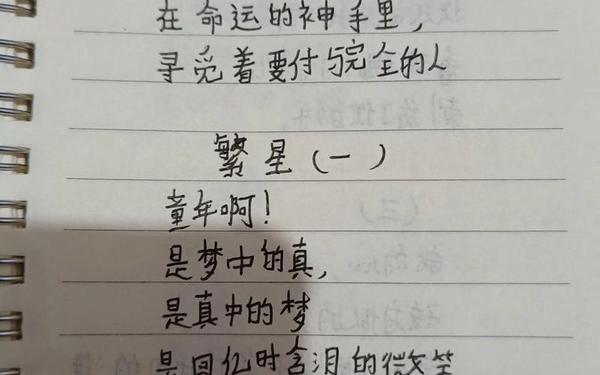 在命运的神手里，
寻觅着要付与完全的人
繁星（一）
童年啊！
是梦中的真，
是真中的梦
是回忆时含泪的微笑